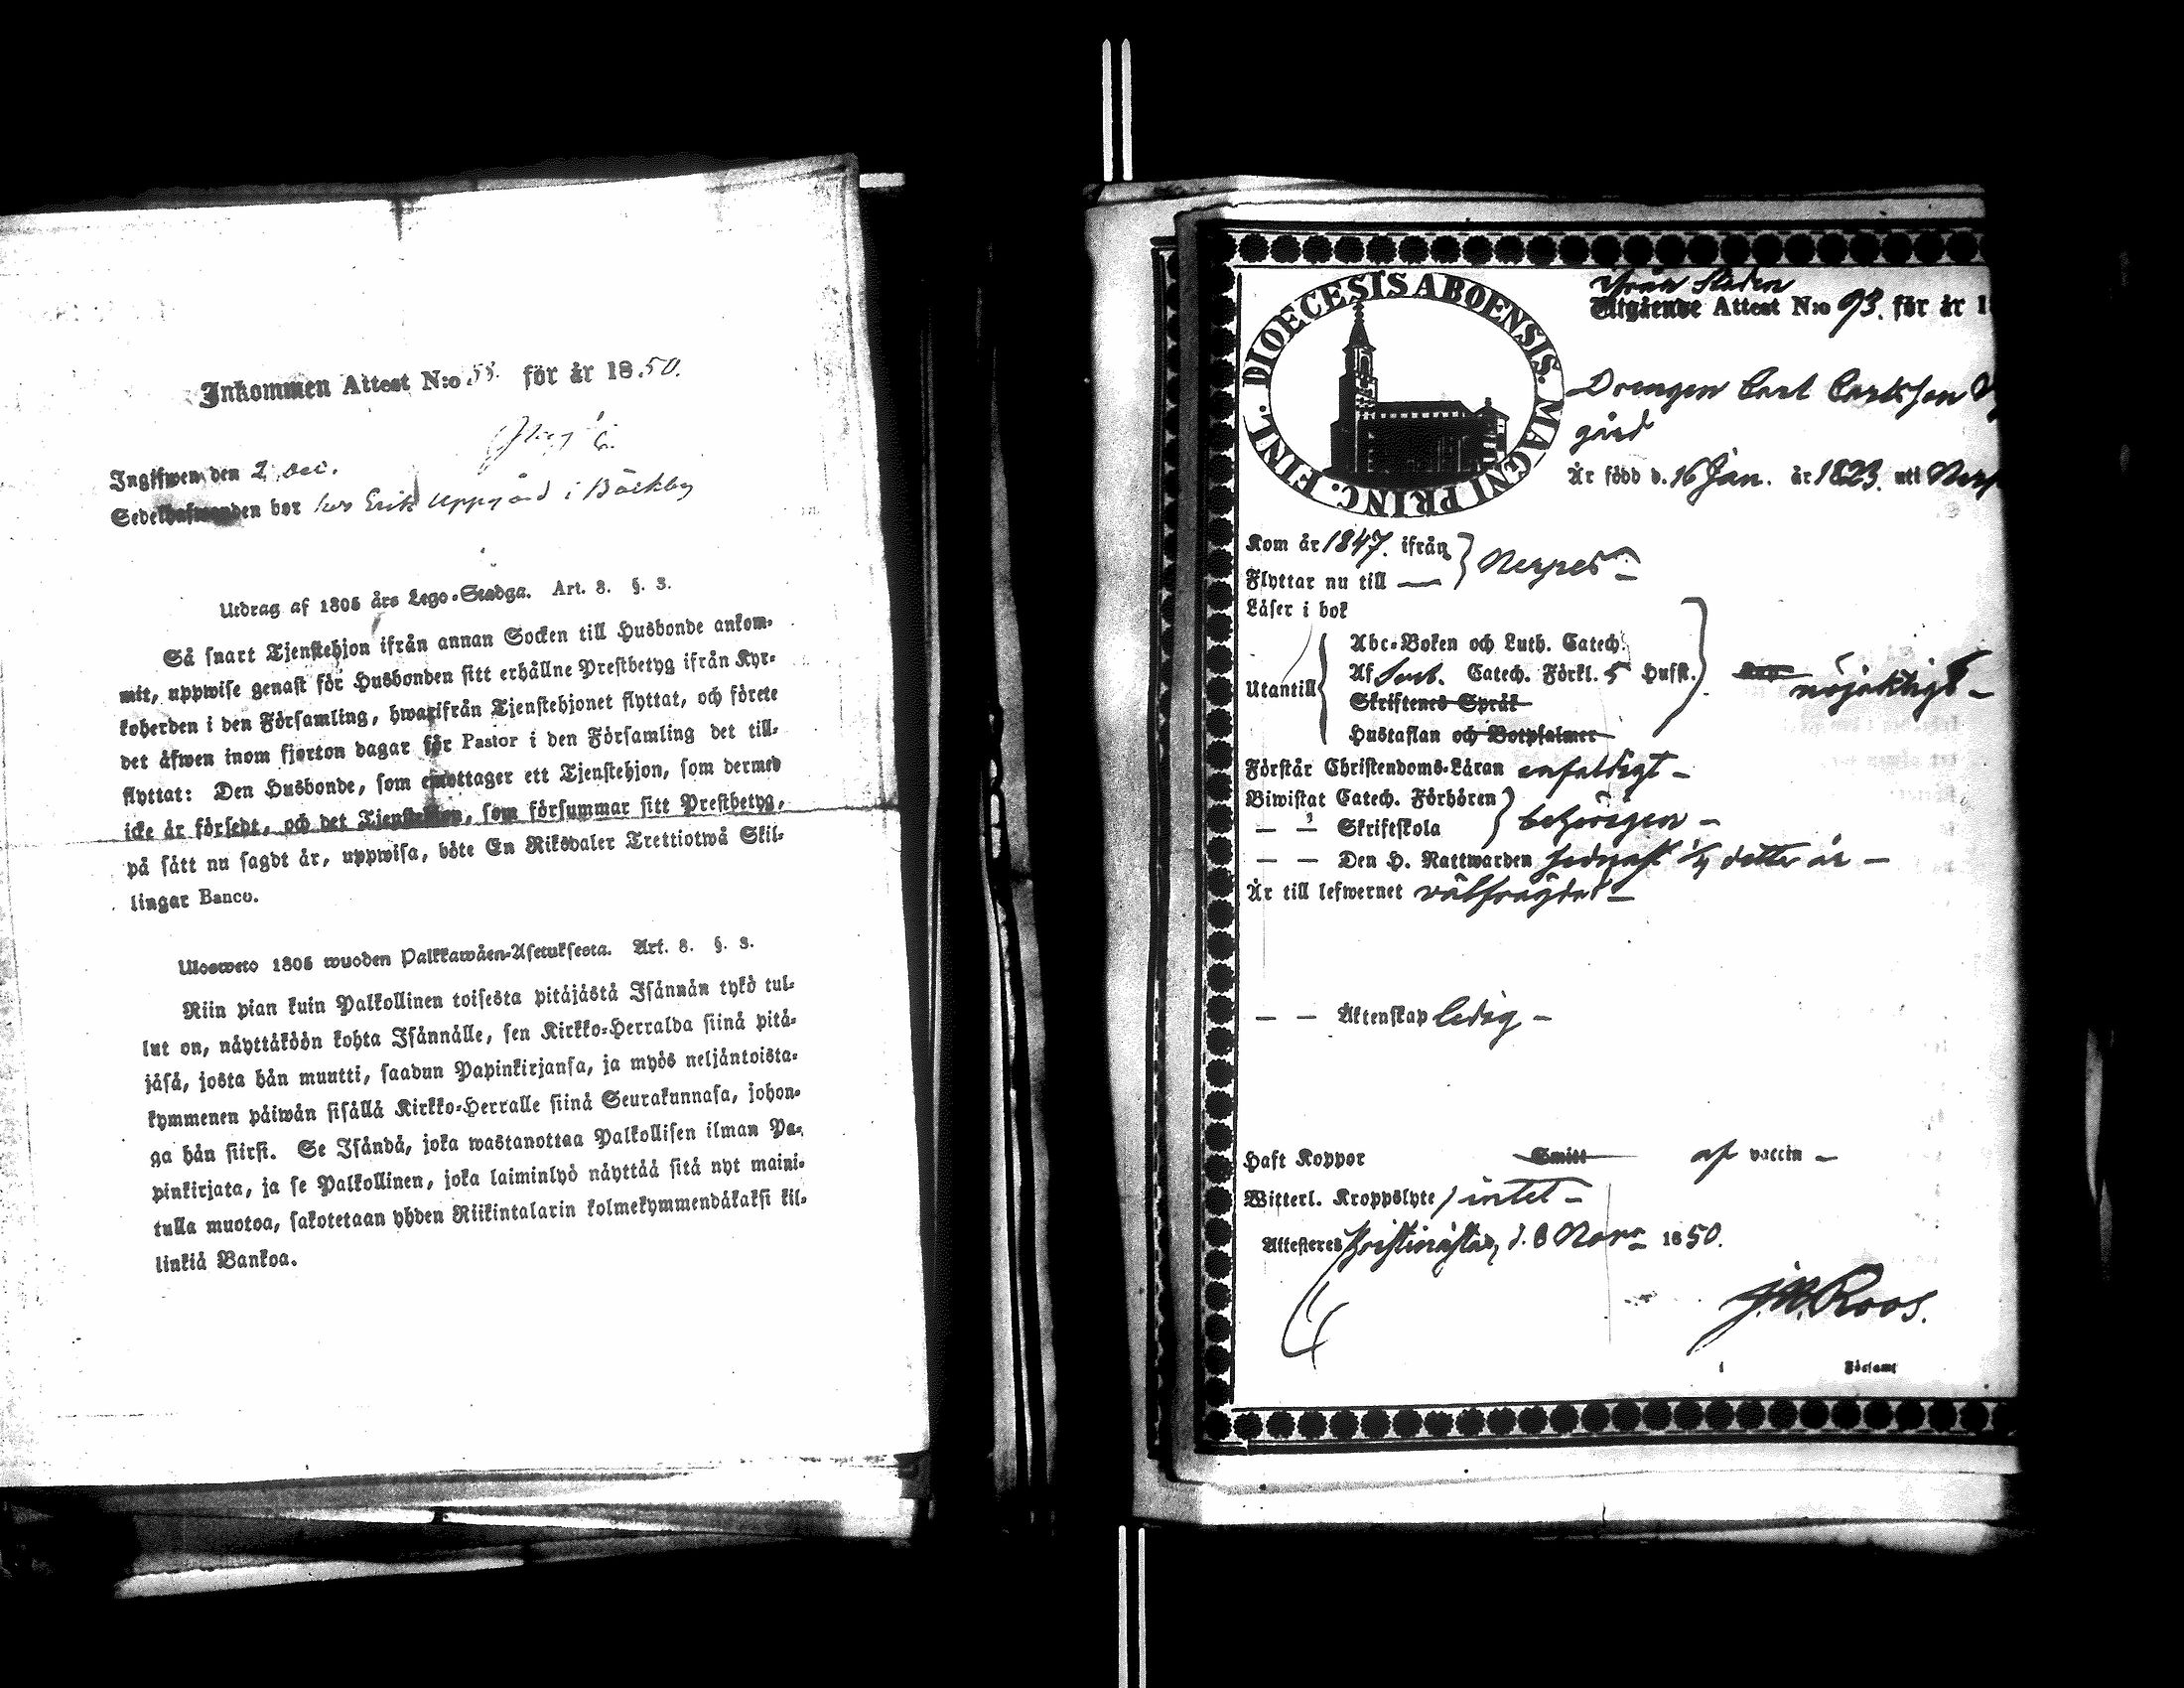 Inkommen Attest N:o 55. för år 1850.
Ingifwen den 2 Dec.
Sedelhafwanden bor hos Erik Uppgård i Bäckby
Utdrag af 1805 års Lego-Stadga. Art. 8. §. 3.
Så snart Tjenstehjon ifrån annan Socken till Husbonde ankom-
mit, uppwise genast för Husbonden sitt erhållne Prestbetyg ifrån Kyr-
koherden i den Församling, hwarifrån Tjenstehjonet flyttat, och förete
det äfwen inom fjorton dagar för Pastor i den Församling det till-
flyttat: Den Husbonde, som emottager ett Tjenstehjon, som dermed
icke är försedt, och det Tjenstehjon, som försummar sitt Prestbetyg,
på sätt nu sagdt är, uppwisa, böte En Riksdaler Trettiotwå Skil-
lingar Banco.
Ulosweto 1805 wuoden Palkkawäen-Asetuksesta. Art. 8. §. 3.
Niin pian kuin Palkollinen toisesta pitäjästä Isännän tykö tul-
lut on, näyttäköön kohta Isännälle, sen Kirkko-Herralda siinä pitä-
jäsä, josta hän muutti, saadun Papinkirjansa, ja myös neljäntoista-
kymmenen päiwän sisällä Kirkko-Herralle siinä Seurakunnasa, johon-
ga hän siirsi. Se Isändä, joka wastanottaa Palkollisen ilman Pa-
pinkirjata, ja se Palkollinen, joka laiminlyö näyttää sitä nyt maini-
tulla muotoa, sakotetaan yhden Riikintalarin kolmekymmendäkaksi kil-
linkiä Bankoa.
DIOECESIS ABOENSIS. MAGNI PRINC. FINL.
ifrån Staden
Utgående Attest N:o 93. för år 1
Drengen Carl Carlsson
gård
Är född d. 16 Jan. år 1823. uti
Kom år 1847. ifrån } Nerpes
Flyttar nu till —
Läser i bok
Abc-Boken och Luth. Catech.
Utantill Af Sveb. Catech. Förkl. 5 Hufst. nöjaktigt —
Skriftenes Språk
Hustaflan och Botpsalmer
Förstår Christendoms-Läran enfaldigt —
Biwistat Catech. Förhören } behörigen —
— — Skriftskola
— — Den H. Nattwarden sednast detta år —
Är till lefwernet välfrägdad —
— — Äktenskap ledig —
Haft Koppor Smitt af vaccin —
Witterl. Kroppslyte intet —
Attesteres Kristinestad, d. 8 Novr 1850.
J. N. Roos.
i Församl